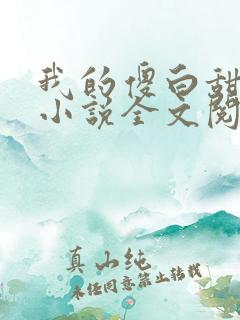 我的傻白甜
小说全文阅
真山纯
未经同意禁止转载